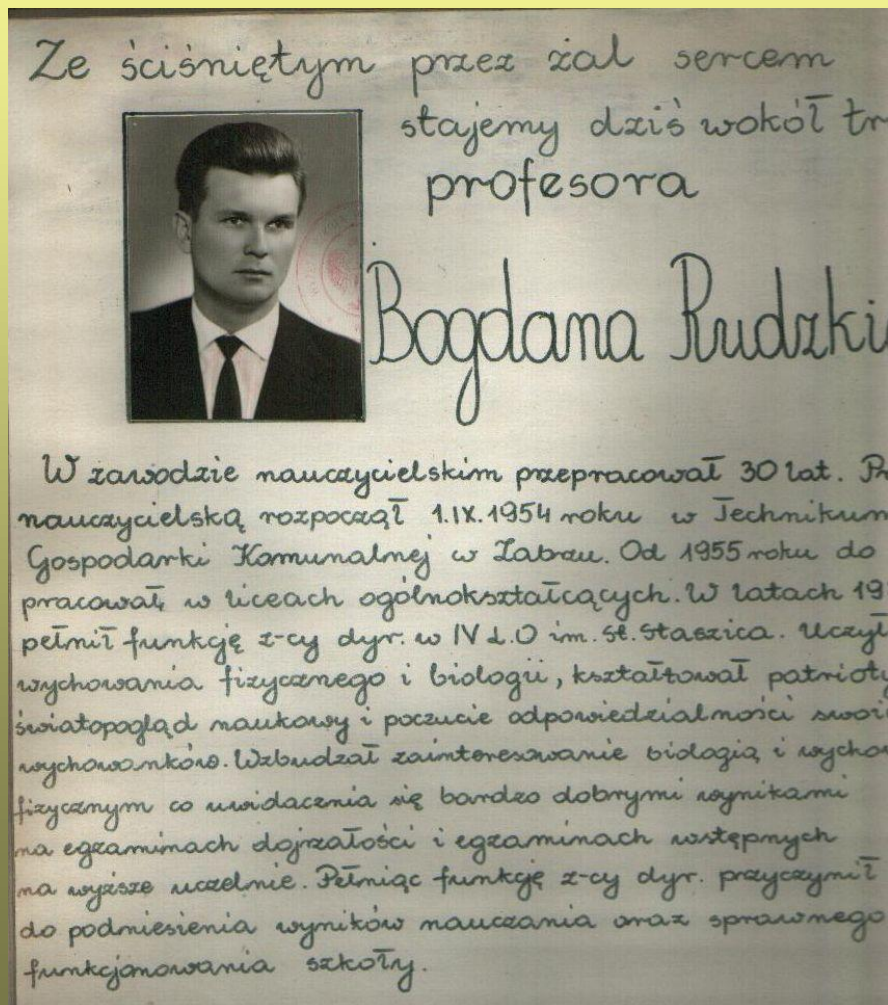 Ze ściśniętym przez żal sercem
stajemy dziś wokół tr
profesora
Bogdana Rudzki
W zawodzie nauczycielskim przepracował 30 lat. Pr
nauczycielską rozpoczął 1.IX.1954 roku w Technikum
Gospodarki Komunalnej w Zabrzu. Od 1955 roku do
pracował, w liceach ogólnokształcących. W latach 19
pełnił funkcję z-cy dyr. w IV L.O im. St. Staszica. Uczył
wychowania fizycznego i biologii, kształtował patrioty
światopogląd naukowy i poczucie odpowiedzialności swoi
wychowanków. Wzbudzał zainteresowanie biologią i wycho
fizycznym co uwidacznia się bardzo dobrymi wynikami
na egzaminach dojrzałości i egzaminach wstępnych
na wyższe uczelnie. Pełniąc funkcję z-cy dyr. przyczynił
do podniesienia wyników nauczania oraz sprawnego
funkcjonowania szkoły.